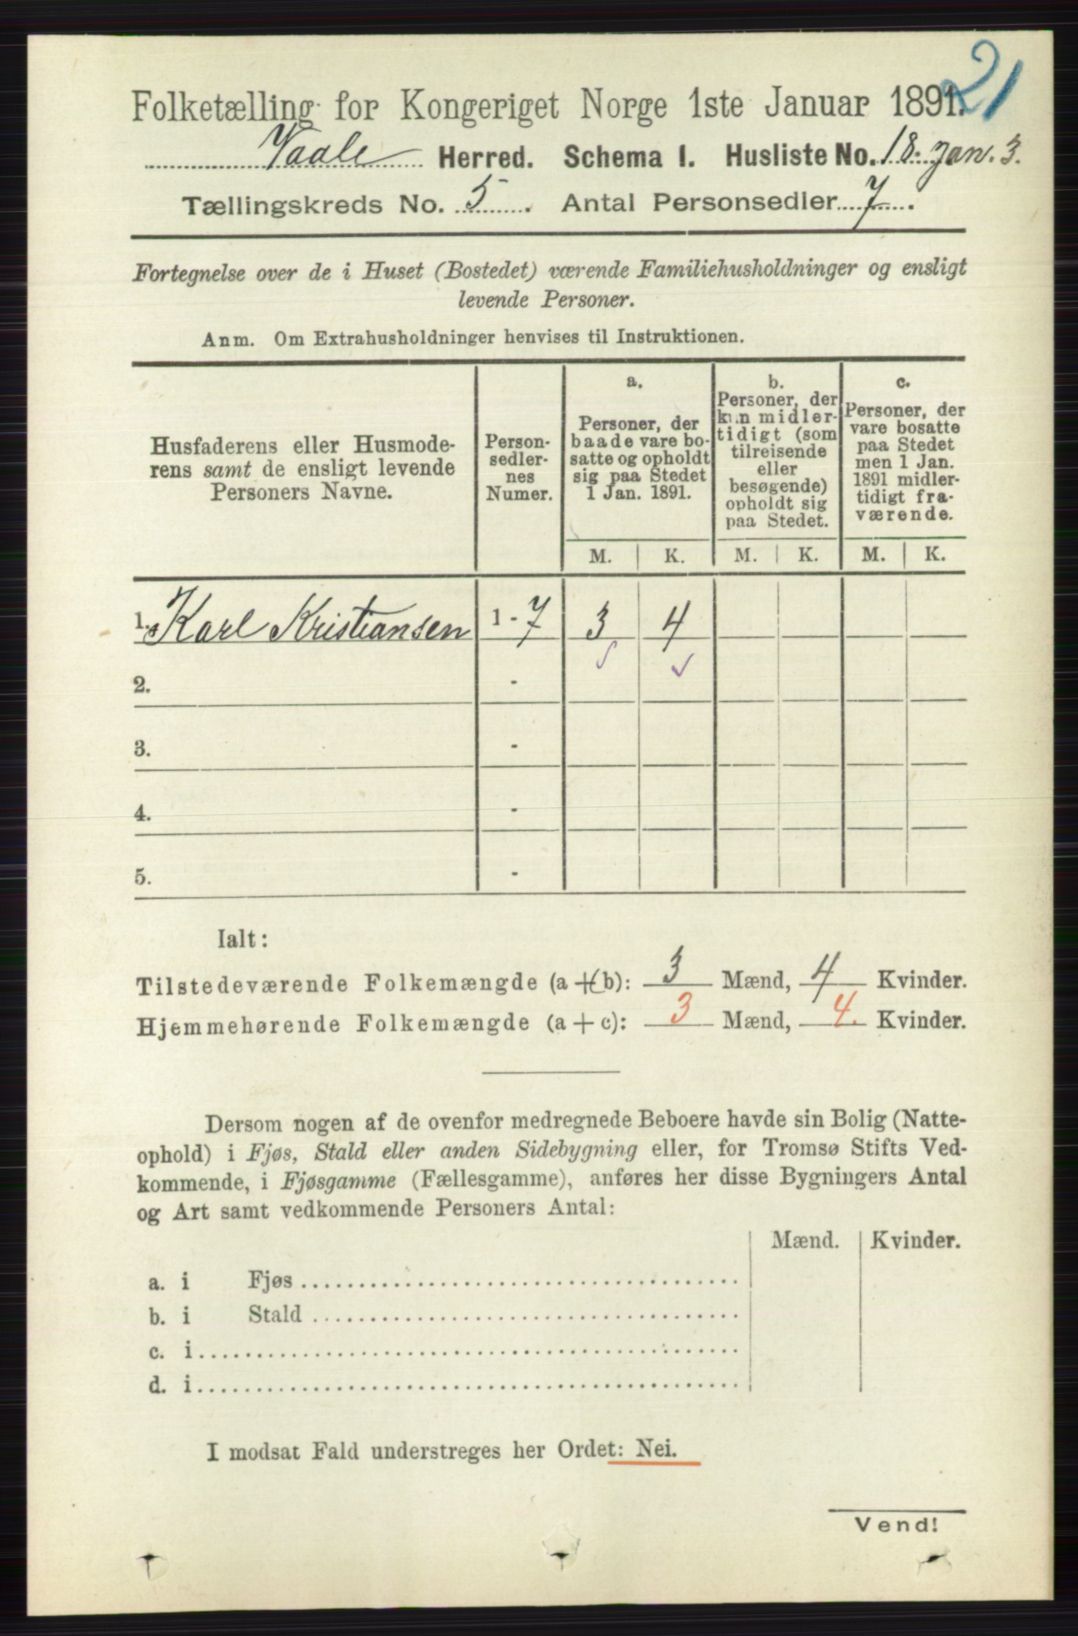 21
Folketælling for Kongeriget Norge 1ste Januar 1891.
Vaale Herred. Schema I. Husliste No. 18. Jan. 3.
Tællingskreds No. 5. Antal Personsedler 7.
Fortegnelse over de i Huset (Bostedet) værende Familiehusholdninger og ensligt
levende Personer.
Anm. Om Extrahusholdninger henvises til Instruktionen.
Husfaderens eller Husmode-
rens samt de ensligt levende
Personers Navne.
Person-
sedler-
nes
Numer.
a.
Personer, der
baade vare bo-
satte og opholdt
sig paa Stedet
1 Jan. 1891.
b.
Personer, der
kun midler-
tidigt (som
tilreisende
eller
besøgende)
opholdt sig
paa Stedet.
c.
Personer, der
vare bosatte
paa Stedet
men 1 Jan.
1891 midler-
tidigt fra-
værende.
M. K. M. K. M. K.
1. Karl Kristiansen 1 - 7 3 4
2. -
3. -
4. -
5. -
Ialt:
Tilstedeværende Folkemængde (a + b): 3 Mænd, 4 Kvinder.
Hjemmehørende Folkemængde (a + c): 3 Mænd, 4. Kvinder.
Dersom nogen af de ovenfor medregnede Beboere havde sin Bolig (Natte-
ophold) i Fjøs, Stald eller anden Sidebygning eller, for Tromsø Stifts Ved-
kommende, i Fjøsgamme (Fællesgamme), anføres her disse Bygningers Antal
og Art samt vedkommende Personers Antal:
Mænd. Kvinder.
a. i Fjøs
b. i Stald
c. i
d. i
I modsat Fald understreges her Ordet: Nei.
Vend!